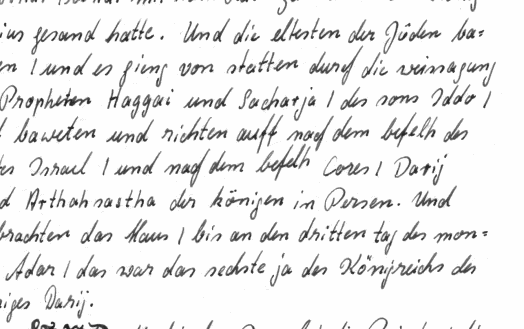 ius gesand hatte. Und die eltesten der Jüden ba=
en / und es gieng von statten durch die weissagung
Propheten Haggai und Sacharja / des sons Iddo /
baweten und richten auff nach dem befelh des
tes Israel / und nach dem befelh Cores / Darij
d Arthahsastha der königen in Persen. Und
brachten das Haus / bis an den dritten tag des mon=
Adar / das war das sechste ja des Königreichs des
niges Darij.